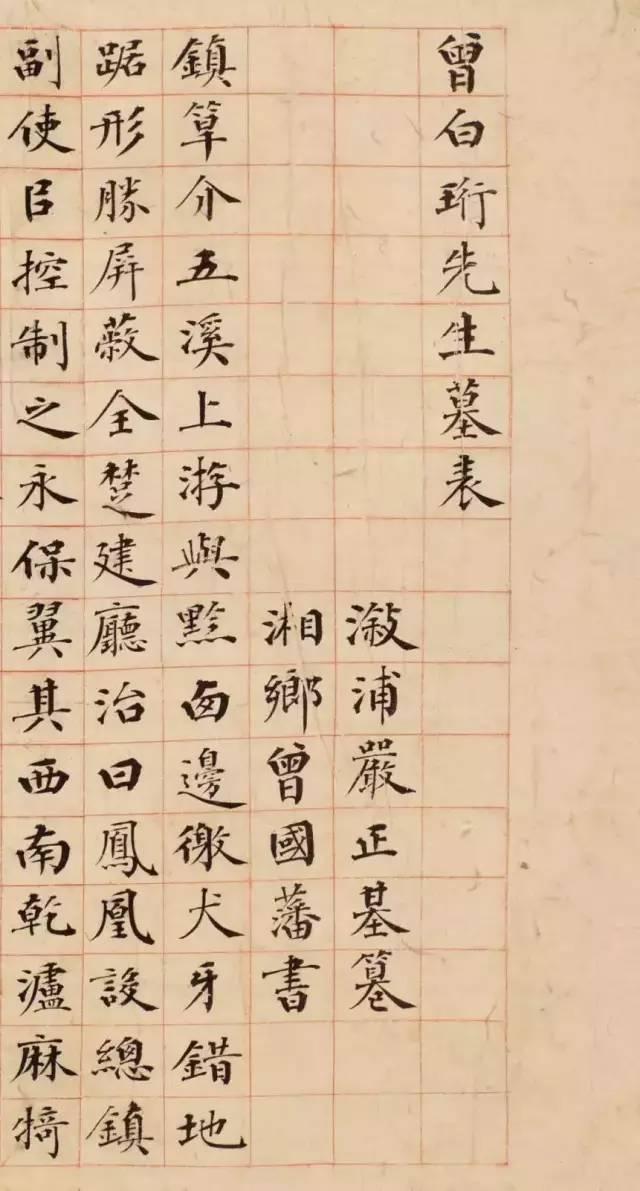 曾白珩先生墓表
漵浦嚴正基纂
湘鄉曾國藩書
鎮筸介五溪上游與黔卥邊徼犬牙錯地
踞形勝屏蔽全楚建廳治曰鳳凰設總鎮
副使㠯控制之永保翼其西南乾瀘麻犄